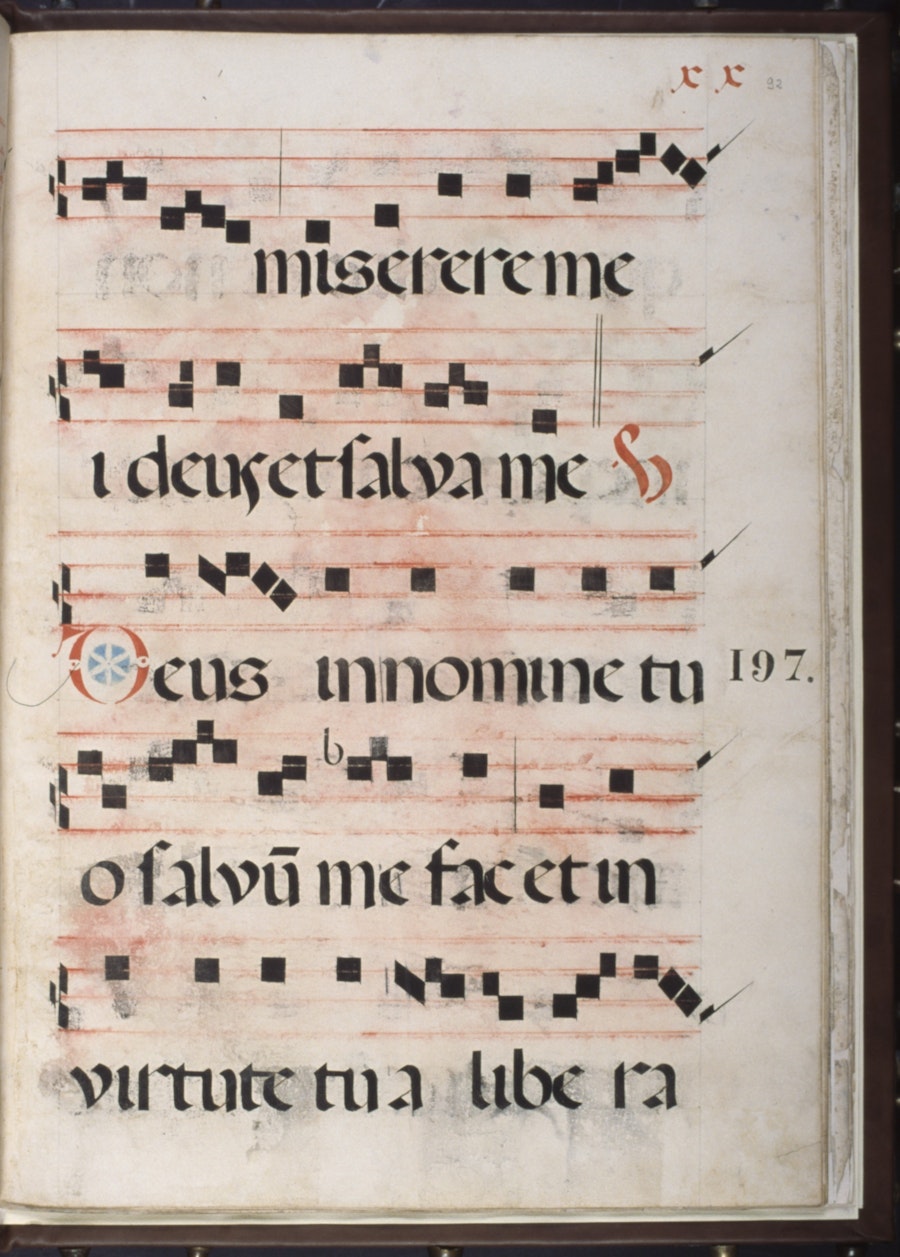 x x 92
miserere me
i deus et salva me V
Deus in nomine tu 197.
b
o salvū me fac et in
virtute tua libe ra